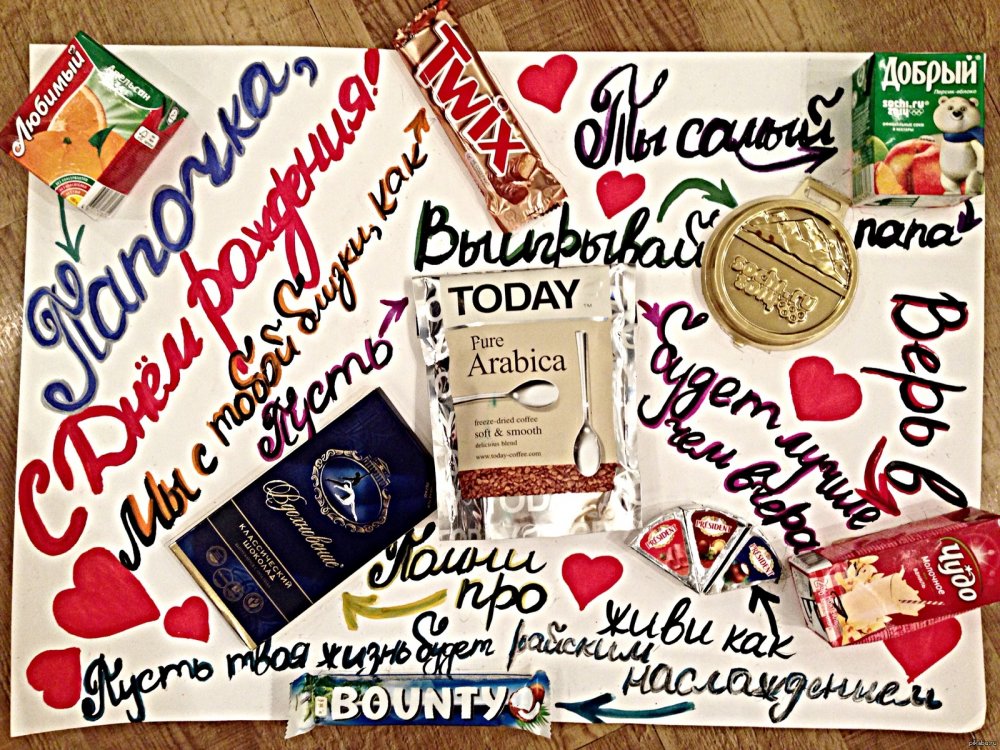 Любимый
Апельсин
Папочка,
С Днём рождения!
Мы с тобой близки, как
TWIX
Ты самый
Добрый
Персик-яблоко
sochi.ru
2014
папа
Выигрывай
sochi.ru
2014
Пусть
TODAY
Pure
Arabica
freeze-dried coffee
soft & smooth
delicious blend
www.today-coffee.com
будет лучше
чем вчера
Верь в
Чудо
Молочное
Помни
про
Вдохновение
КЛАССИЧЕСКИЙ
ШОКОЛАД
живи как
PRÉSIDENT
PRÉSIDENT
PRÉSIDENT
Пусть твоя жизнь будет райским
наслаждением
BOUNTY